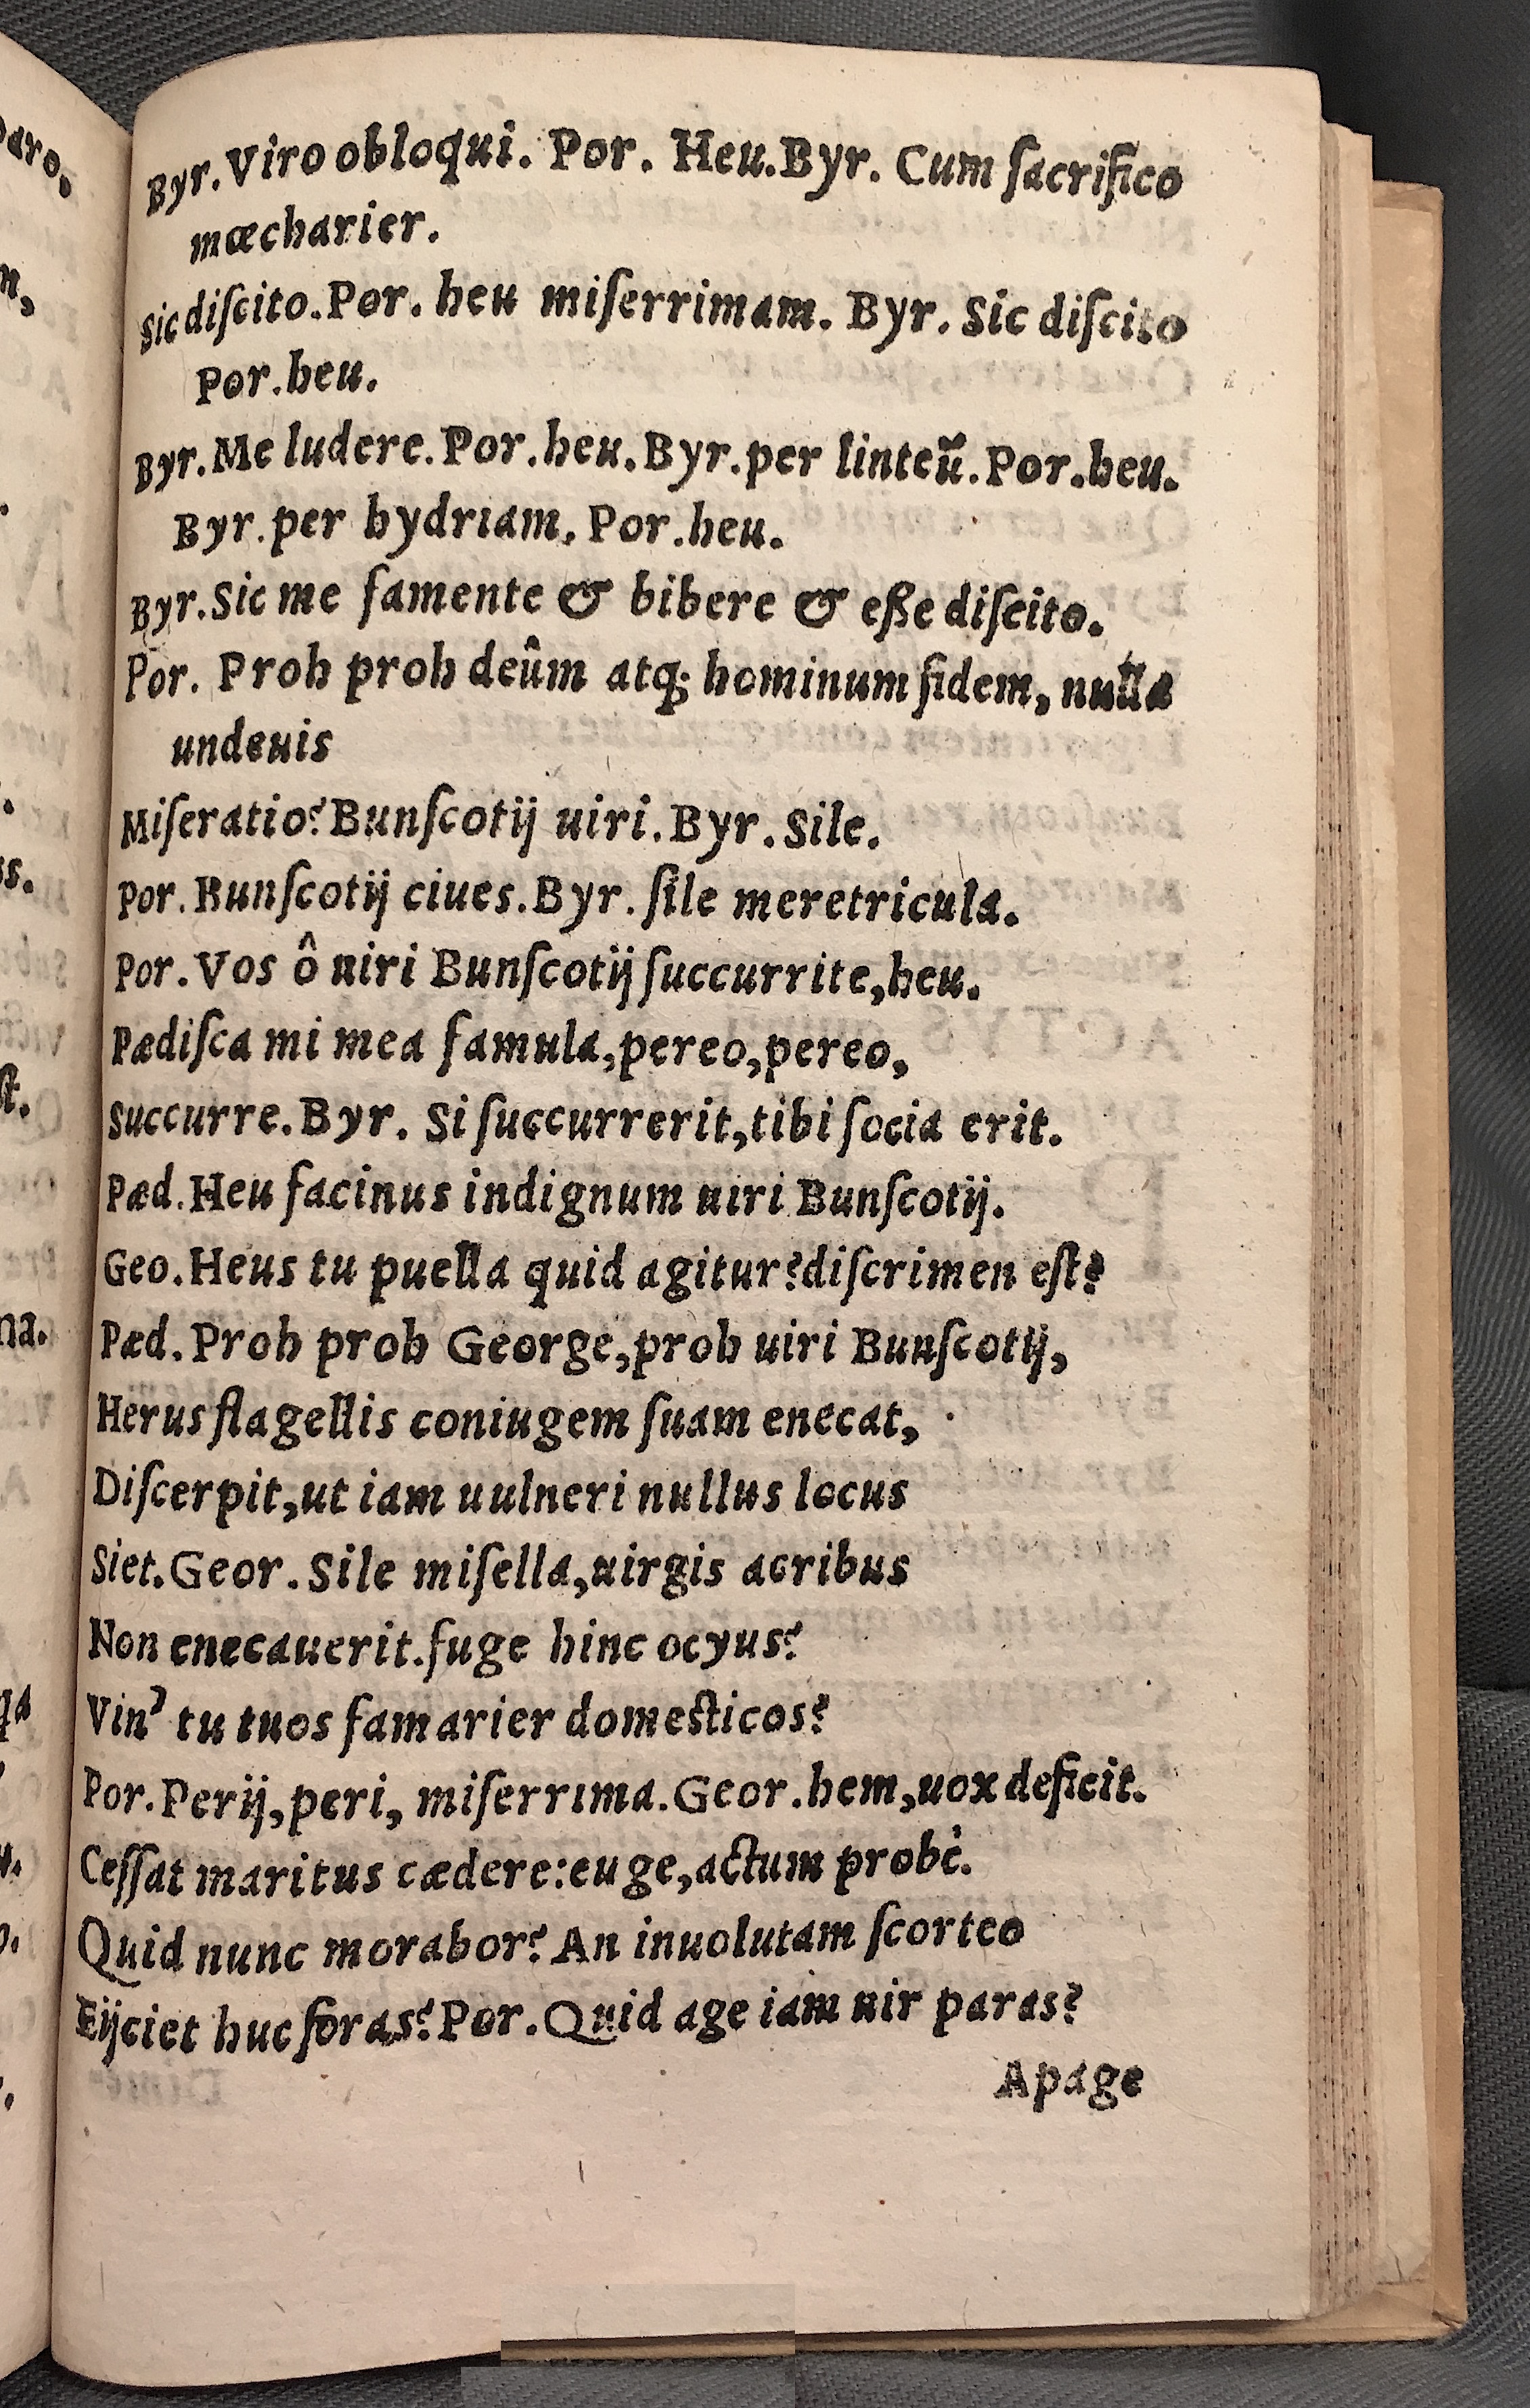 Byr. Viro obloqui. Por. Heu. Byr. Cum ſacrifico
mœcharier.
Sic diſcito. Por. heu miſerrimam. Byr. Sic diſcito
Por. heu.
Byr. Me ludere. Por. heu. Byr. per linteũ. Por. heu.
Byr. per hydriam, Por. heu.
Byr. Sic me famente & bibere & eße diſcito.
Por. Proh proh deûm atq; hominum fidem, nulla
undeuis
Miſeratio? Bunſcotij uiri. Byr. Sile.
Por. Bunſcotij ciues. Byr. ſile meretricula.
Por. Vos ô uiri Bunſcotij ſuccurrite, heu.
Pædiſca mi mea famula, pereo, pereo,
Succurre. Byr. Si ſuccurrerit, tibi ſocia erit.
Pæd. Heu facinus indignum uiri Bunſcotij.
Geo. Heus tu puella quid agitur? diſcrimen eſt?
Pæd. Proh proh George, proh uiri Bunſcotij,
Herus flagellis coniugem ſuam enecat,
Diſcerpit, ut iam uulneri nullus locus
Siet. Geor. Sile miſella, uirgis acribus
Non enecauerit. fuge hinc ocyus?
Vin' tu tuos famarier domeſticos?
Por. Perij, peri, miſerrima. Geor. hem, uox deficit.
Ceſſat maritus cædere: euge, actum probè.
Quid nunc morabor? An inuolutam ſcorteo
Eijciet huc foras? Por. Quid age iam uir paras?
Apage
paro.
n,
.
.
ſt.
na.
qa